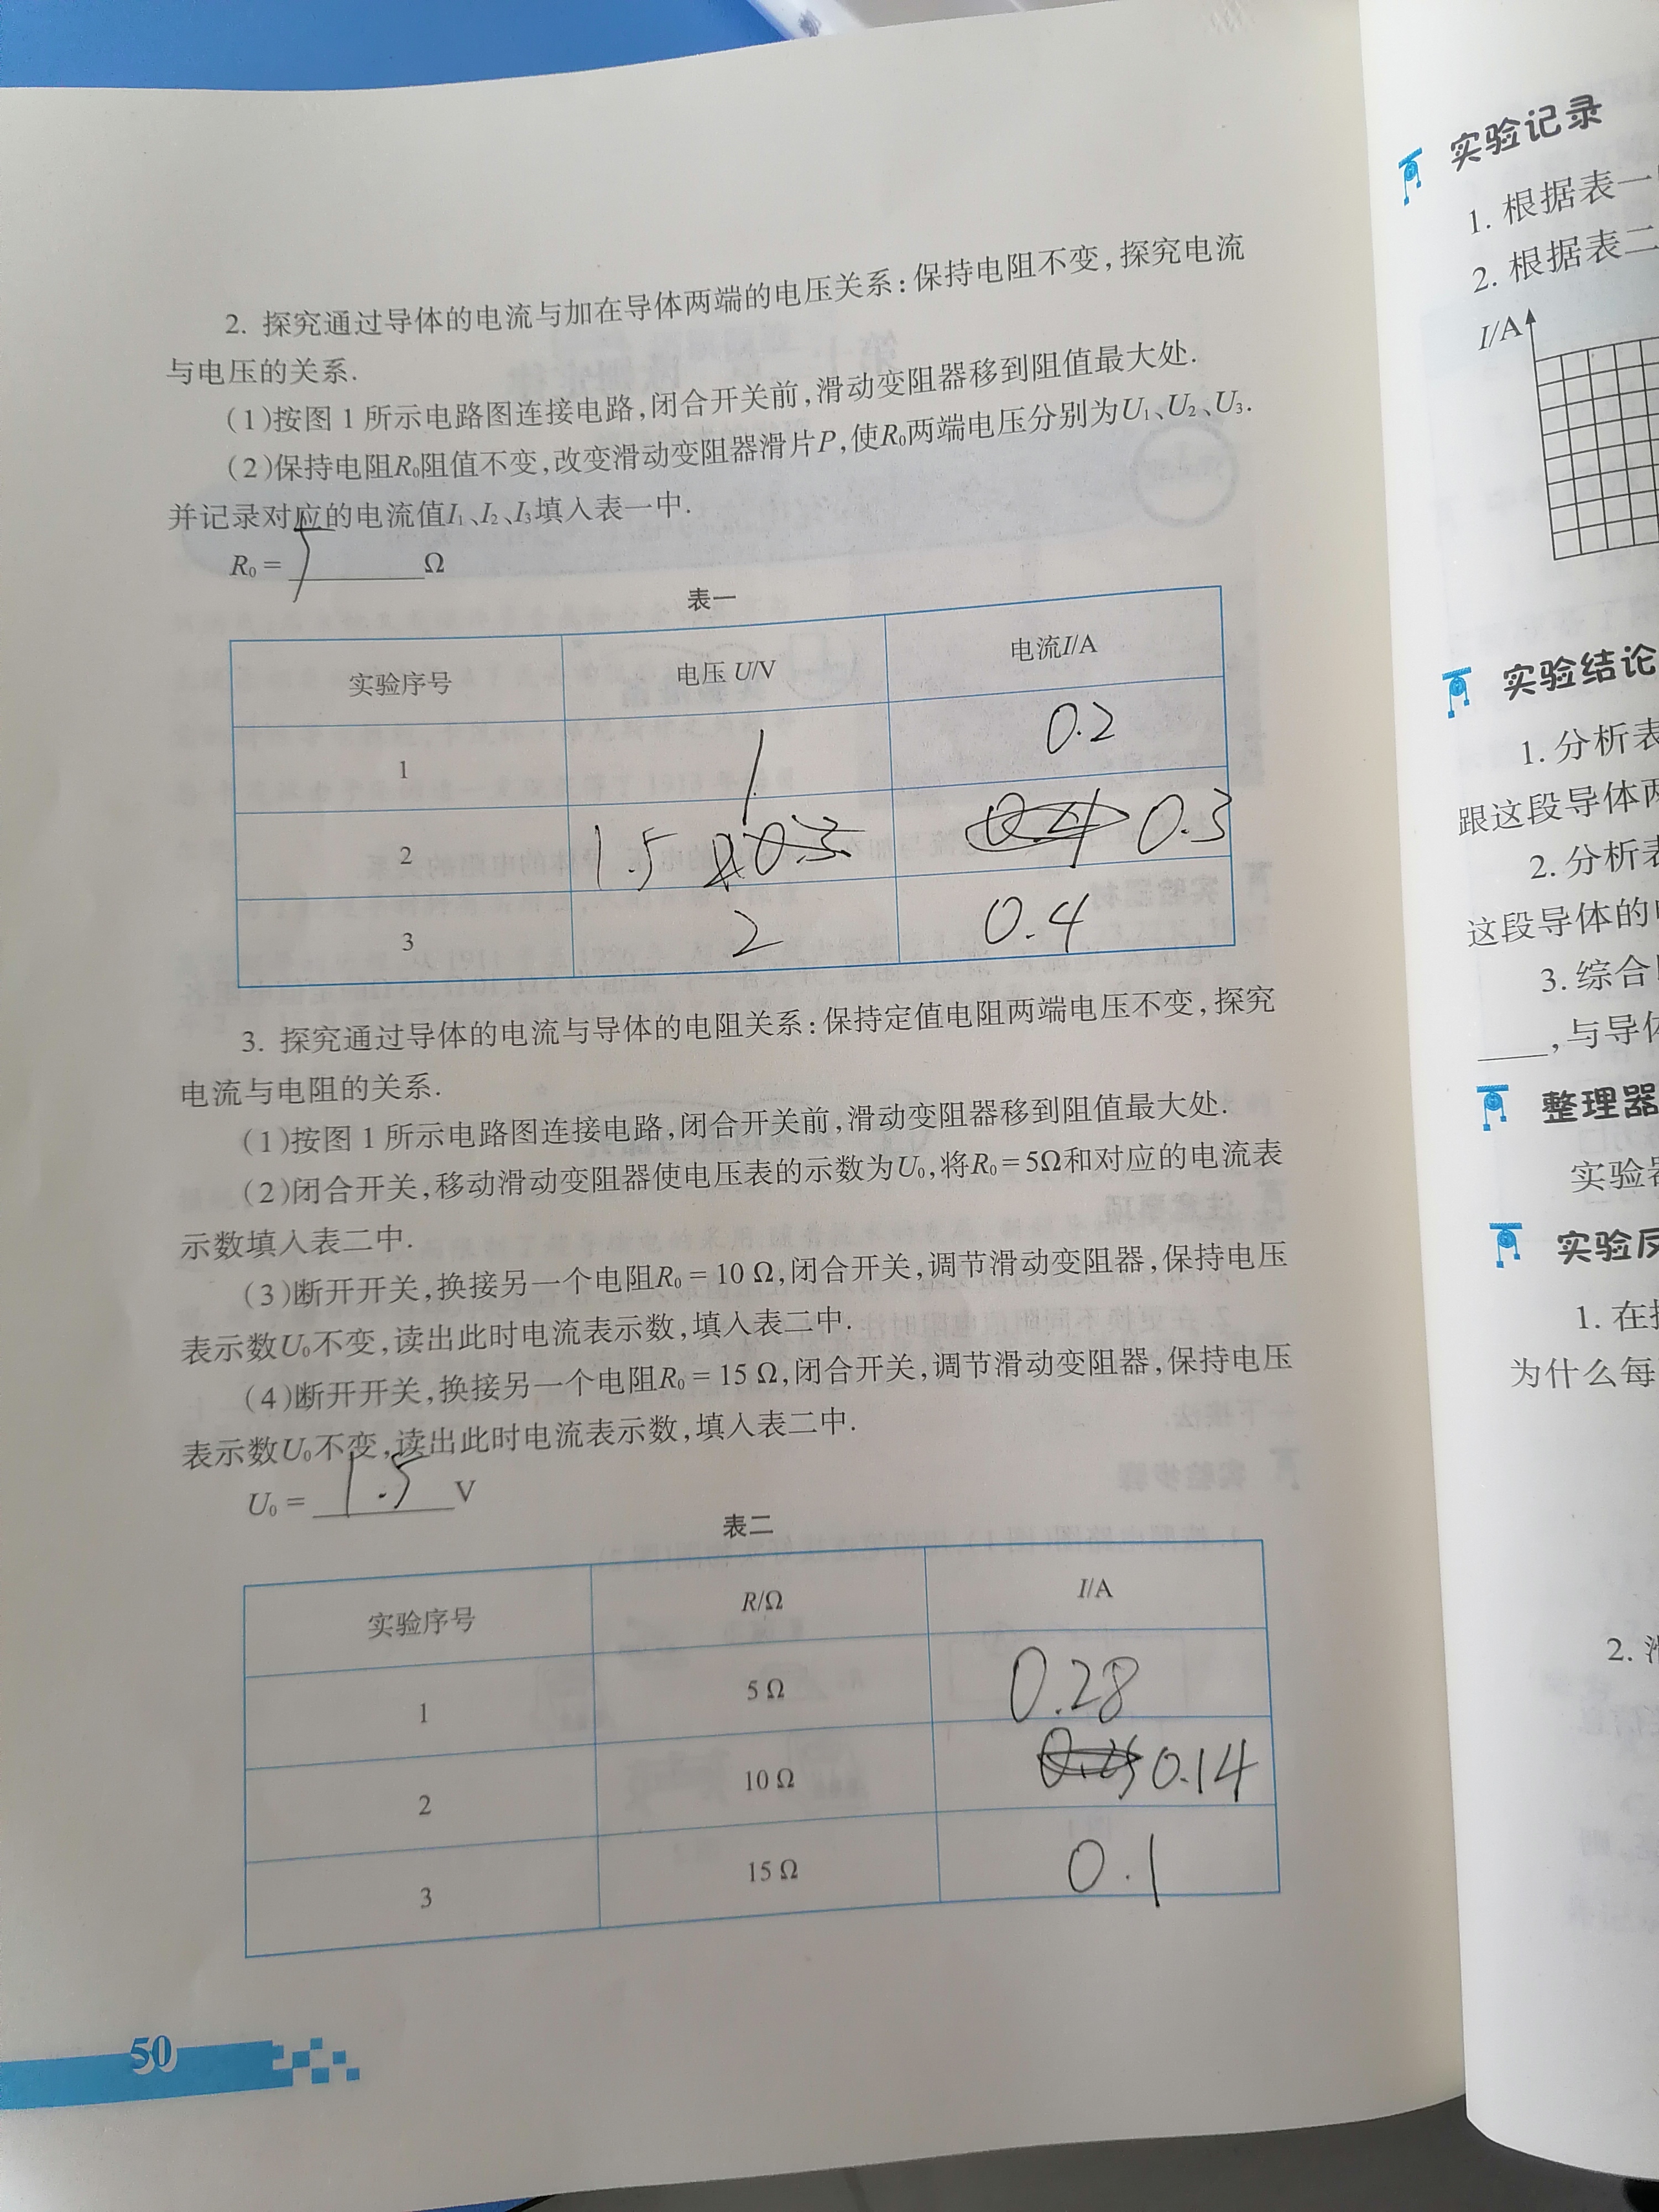 2. 探究通过导体的电流与加在导体两端的电压关系:保持电阻不变,探究电流
与电压的关系.
(1)按图1所示电路图连接电路,闭合开关前,滑动变阻器移到阻值最大处.
(2)保持电阻R₀阻值不变,改变滑动变阻器滑片P,使R₀两端电压分别为U₁、U₂、U₃.
并记录对应的电流值I₁、I₂、I₃填入表一中.
R₀= 5 Ω
表一
实验序号 电压 U/V 电流I/A
1 1 0.2
2 1.5 0.3
3 2 0.4
3. 探究通过导体的电流与导体的电阻关系:保持定值电阻两端电压不变,探究
电流与电阻的关系.
(1)按图1所示电路图连接电路,闭合开关前,滑动变阻器移到阻值最大处.
(2)闭合开关,移动滑动变阻器使电压表的示数为U₀,将R₀=5Ω和对应的电流表
示数填入表二中.
(3)断开开关,换接另一个电阻R₀=10 Ω,闭合开关,调节滑动变阻器,保持电压
表示数U₀不变,读出此时电流表示数,填入表二中.
(4)断开开关,换接另一个电阻R₀=15 Ω,闭合开关,调节滑动变阻器,保持电压
表示数U₀不变,读出此时电流表示数,填入表二中.
U₀= 1.5 V
表二
实验序号 R/Ω I/A
1 5 Ω 0.28
2 10 Ω 0.14
3 15 Ω 0.1
50
实验记录
1. 根据表一
2. 根据表二
I/A
实验结论
1. 分析表
跟这段导体两
2. 分析表
这段导体的
3. 综合
,与导体
整理器
实验器
实验反
1. 在
为什么每
2. 滑